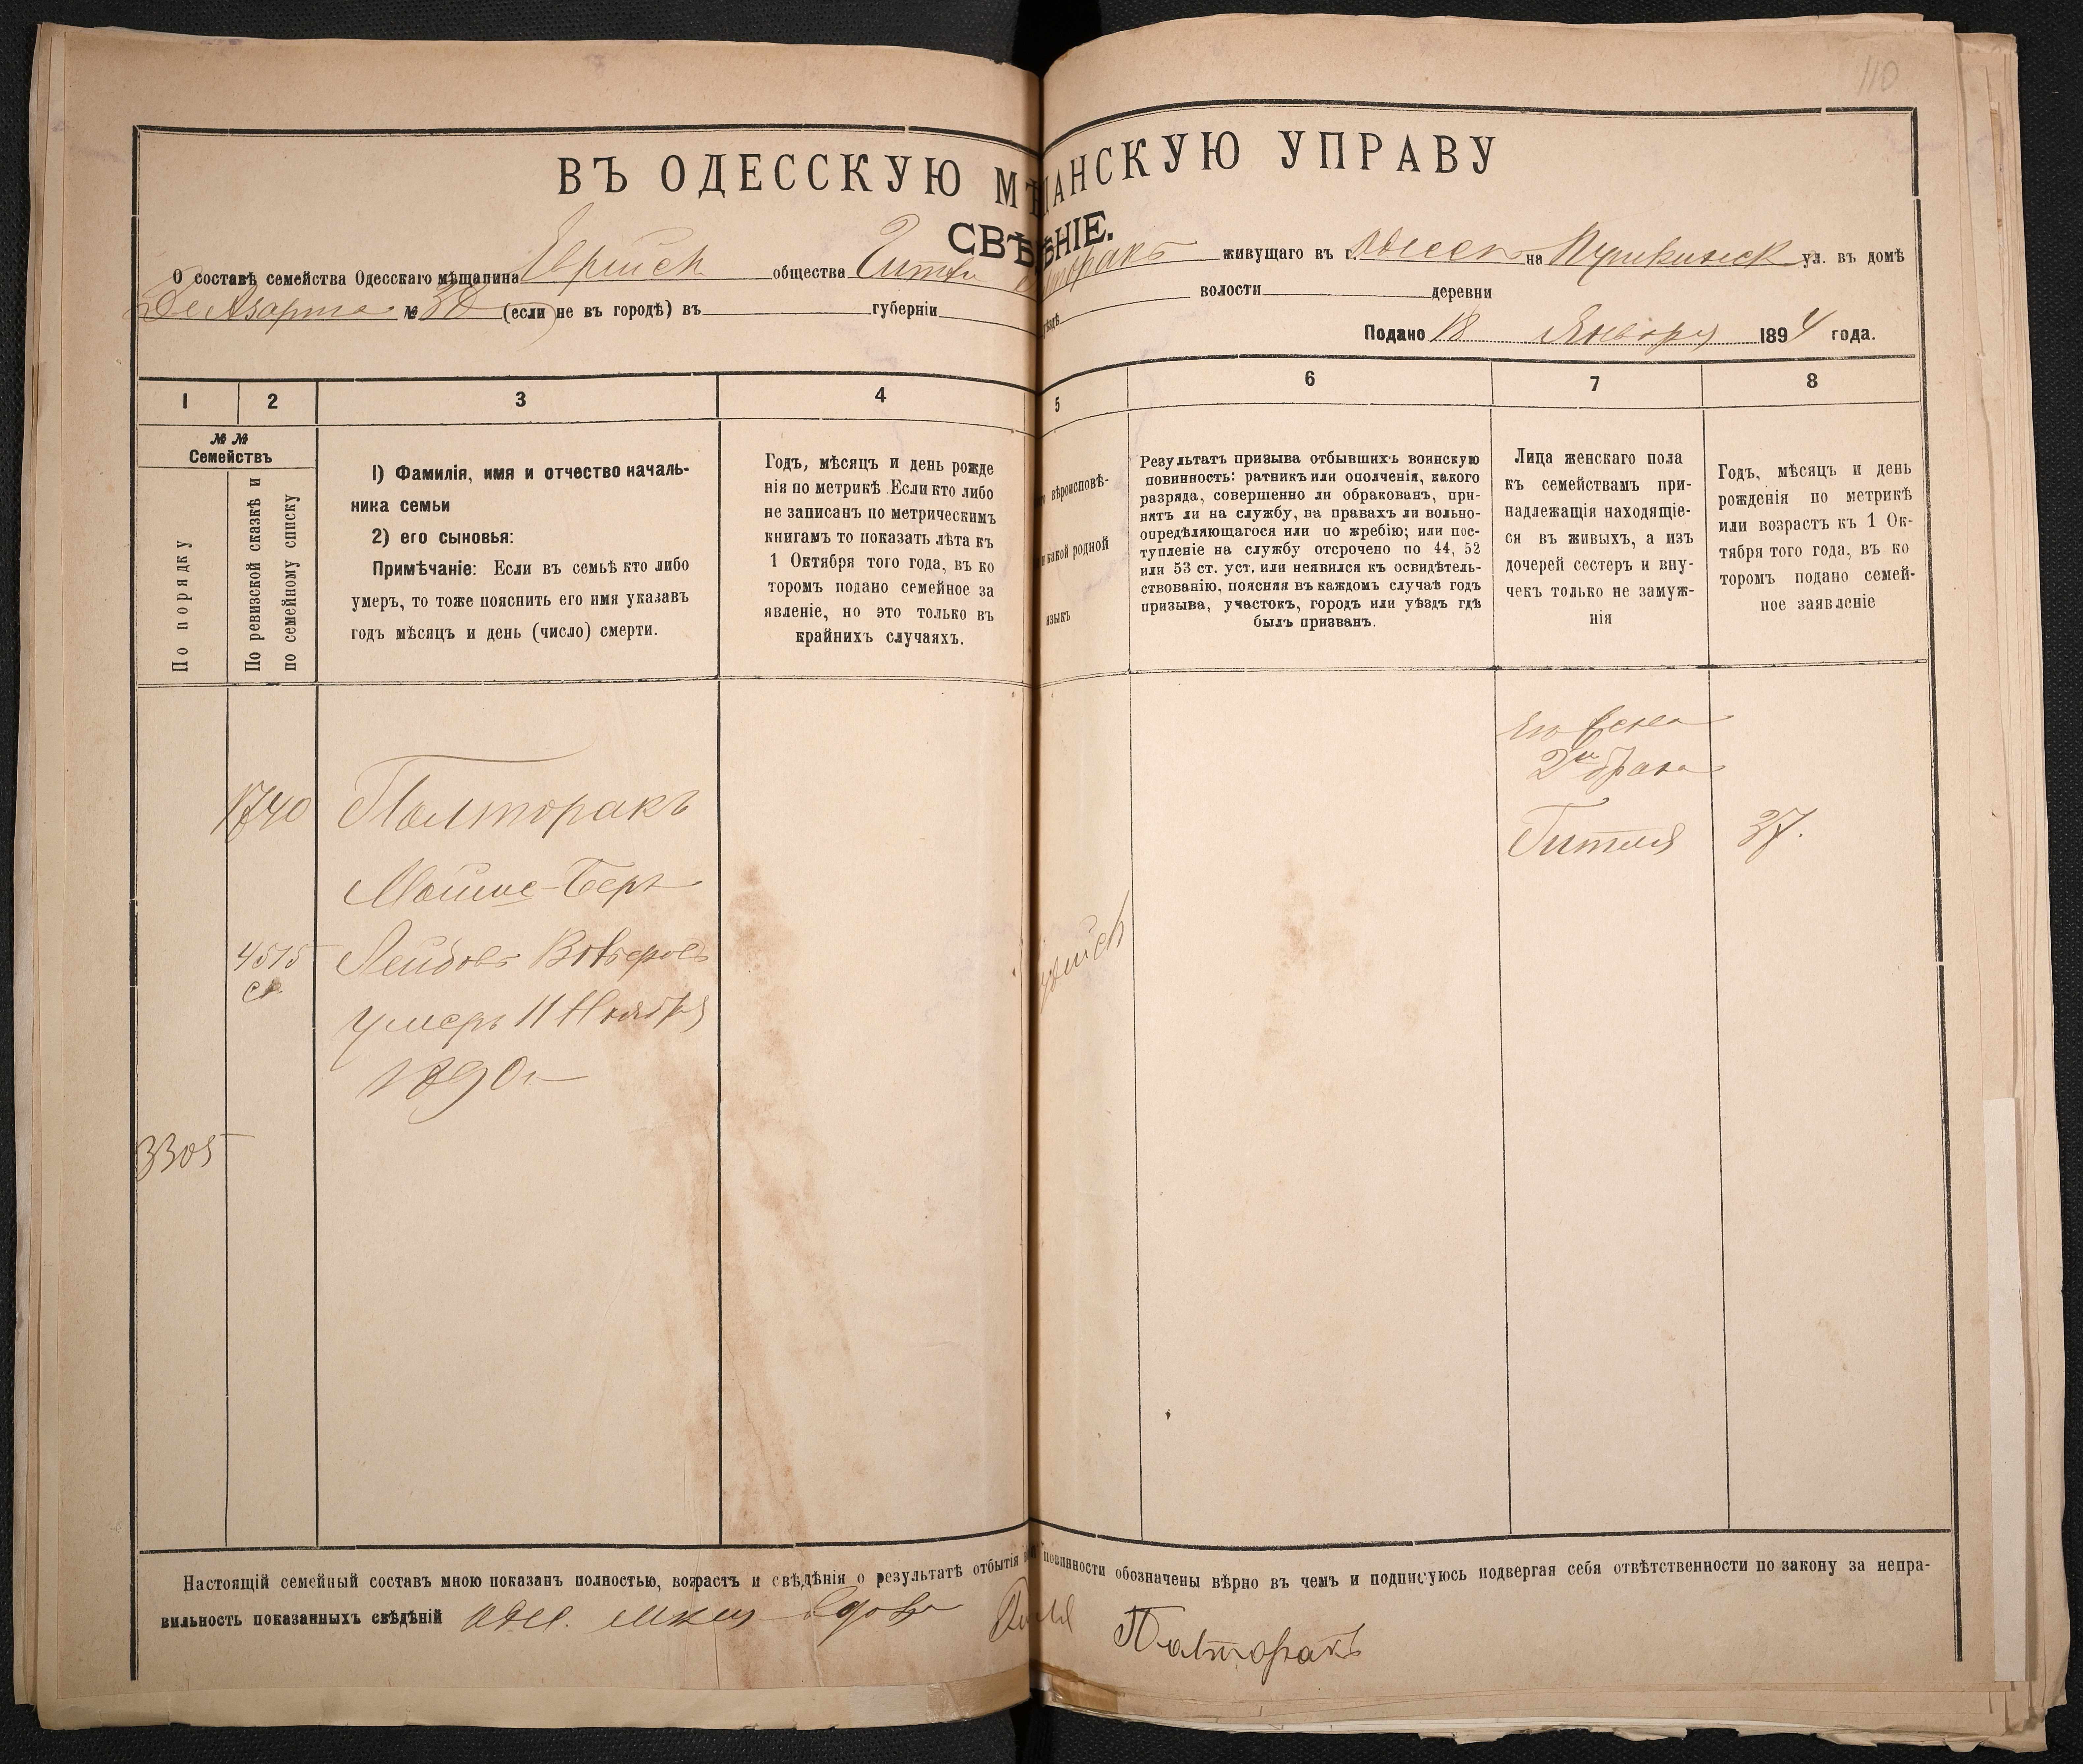 110
ВЪ ОДЕССКУЮ МѢЩАНСКУЮ УПРАВУ
СВѢДѢНІЕ.
О составѣ семейства Одесскаго мѣщанина Еврейск общества Гитли Полторакъ живущаго въ г. Одессѣ на Пушкинск ул. въ домѣ
№ 30 (если не въ городѣ) въ губерніи уѣздѣ волости деревни
Подано 18 Января 1894 года.
1 2 3 4 5 6 7 8
№ № Семействъ
По порядку
По ревизской сказкѣ и по семейному списку
1) Фамилія, имя и отчество началь-
ника семьи
2) его сыновья:
Примѣчаніе: Если въ семьѣ кто либо
умеръ, то тоже пояснить его имя указавъ
годъ мѣсяцъ и день (число) смерти.
Годъ, мѣсяцъ и день рожде
нія по метрикѣ Если кто либо
не записанъ по метрическимъ
книгамъ то показать лѣта къ
1 Октября того года, въ ко
торомъ подано семейное за
явленіе, но это только въ
крайнихъ случаяхъ.
вѣроисповѣ-
какой родной
языкъ
Результатъ призыва отбывшихъ воинскую
повинность: ратникъ или ополченія, какого
разряда, совершенно ли обракованъ, при-
нятъ ли на службу, на правахъ ли вольно-
опредѣляющагося или по жребію; или пос-
тупленіе на службу отсрочено по 44, 52
или 53 ст. уст. или неявился къ освидѣтель-
ствованію, поясняя въ каждомъ случаѣ годъ
призыва, участокъ, городъ или уѣздъ гдѣ
былъ призванъ.
Лица женскаго пола
къ семействамъ при-
надлежащія находящіе-
ся въ живыхъ, а изъ
дочерей сестеръ и вну-
чекъ только не замуж-
нія
Годъ, мѣсяцъ и день
рожденія по метрикѣ
или возрастъ къ 1 Ок-
тября того года, въ ко
торомъ подано семей-
ное заявленіе
Его жена
2го брака
1740 Полторакъ Гитля 37.
Мойше-Беръ
4515 Лейбовъ
умеръ 11 Ноября
1890 г.
3305
Настоящій семейный составъ мною показанъ полностью, возрастъ и свѣдѣнія о результатѣ отбытія повинности обозначены вѣрно въ чемъ и подписуюсь подвергая себя отвѣтственности по закону за непра-
вильность показанныхъ свѣдѣній вдова Полторакъ